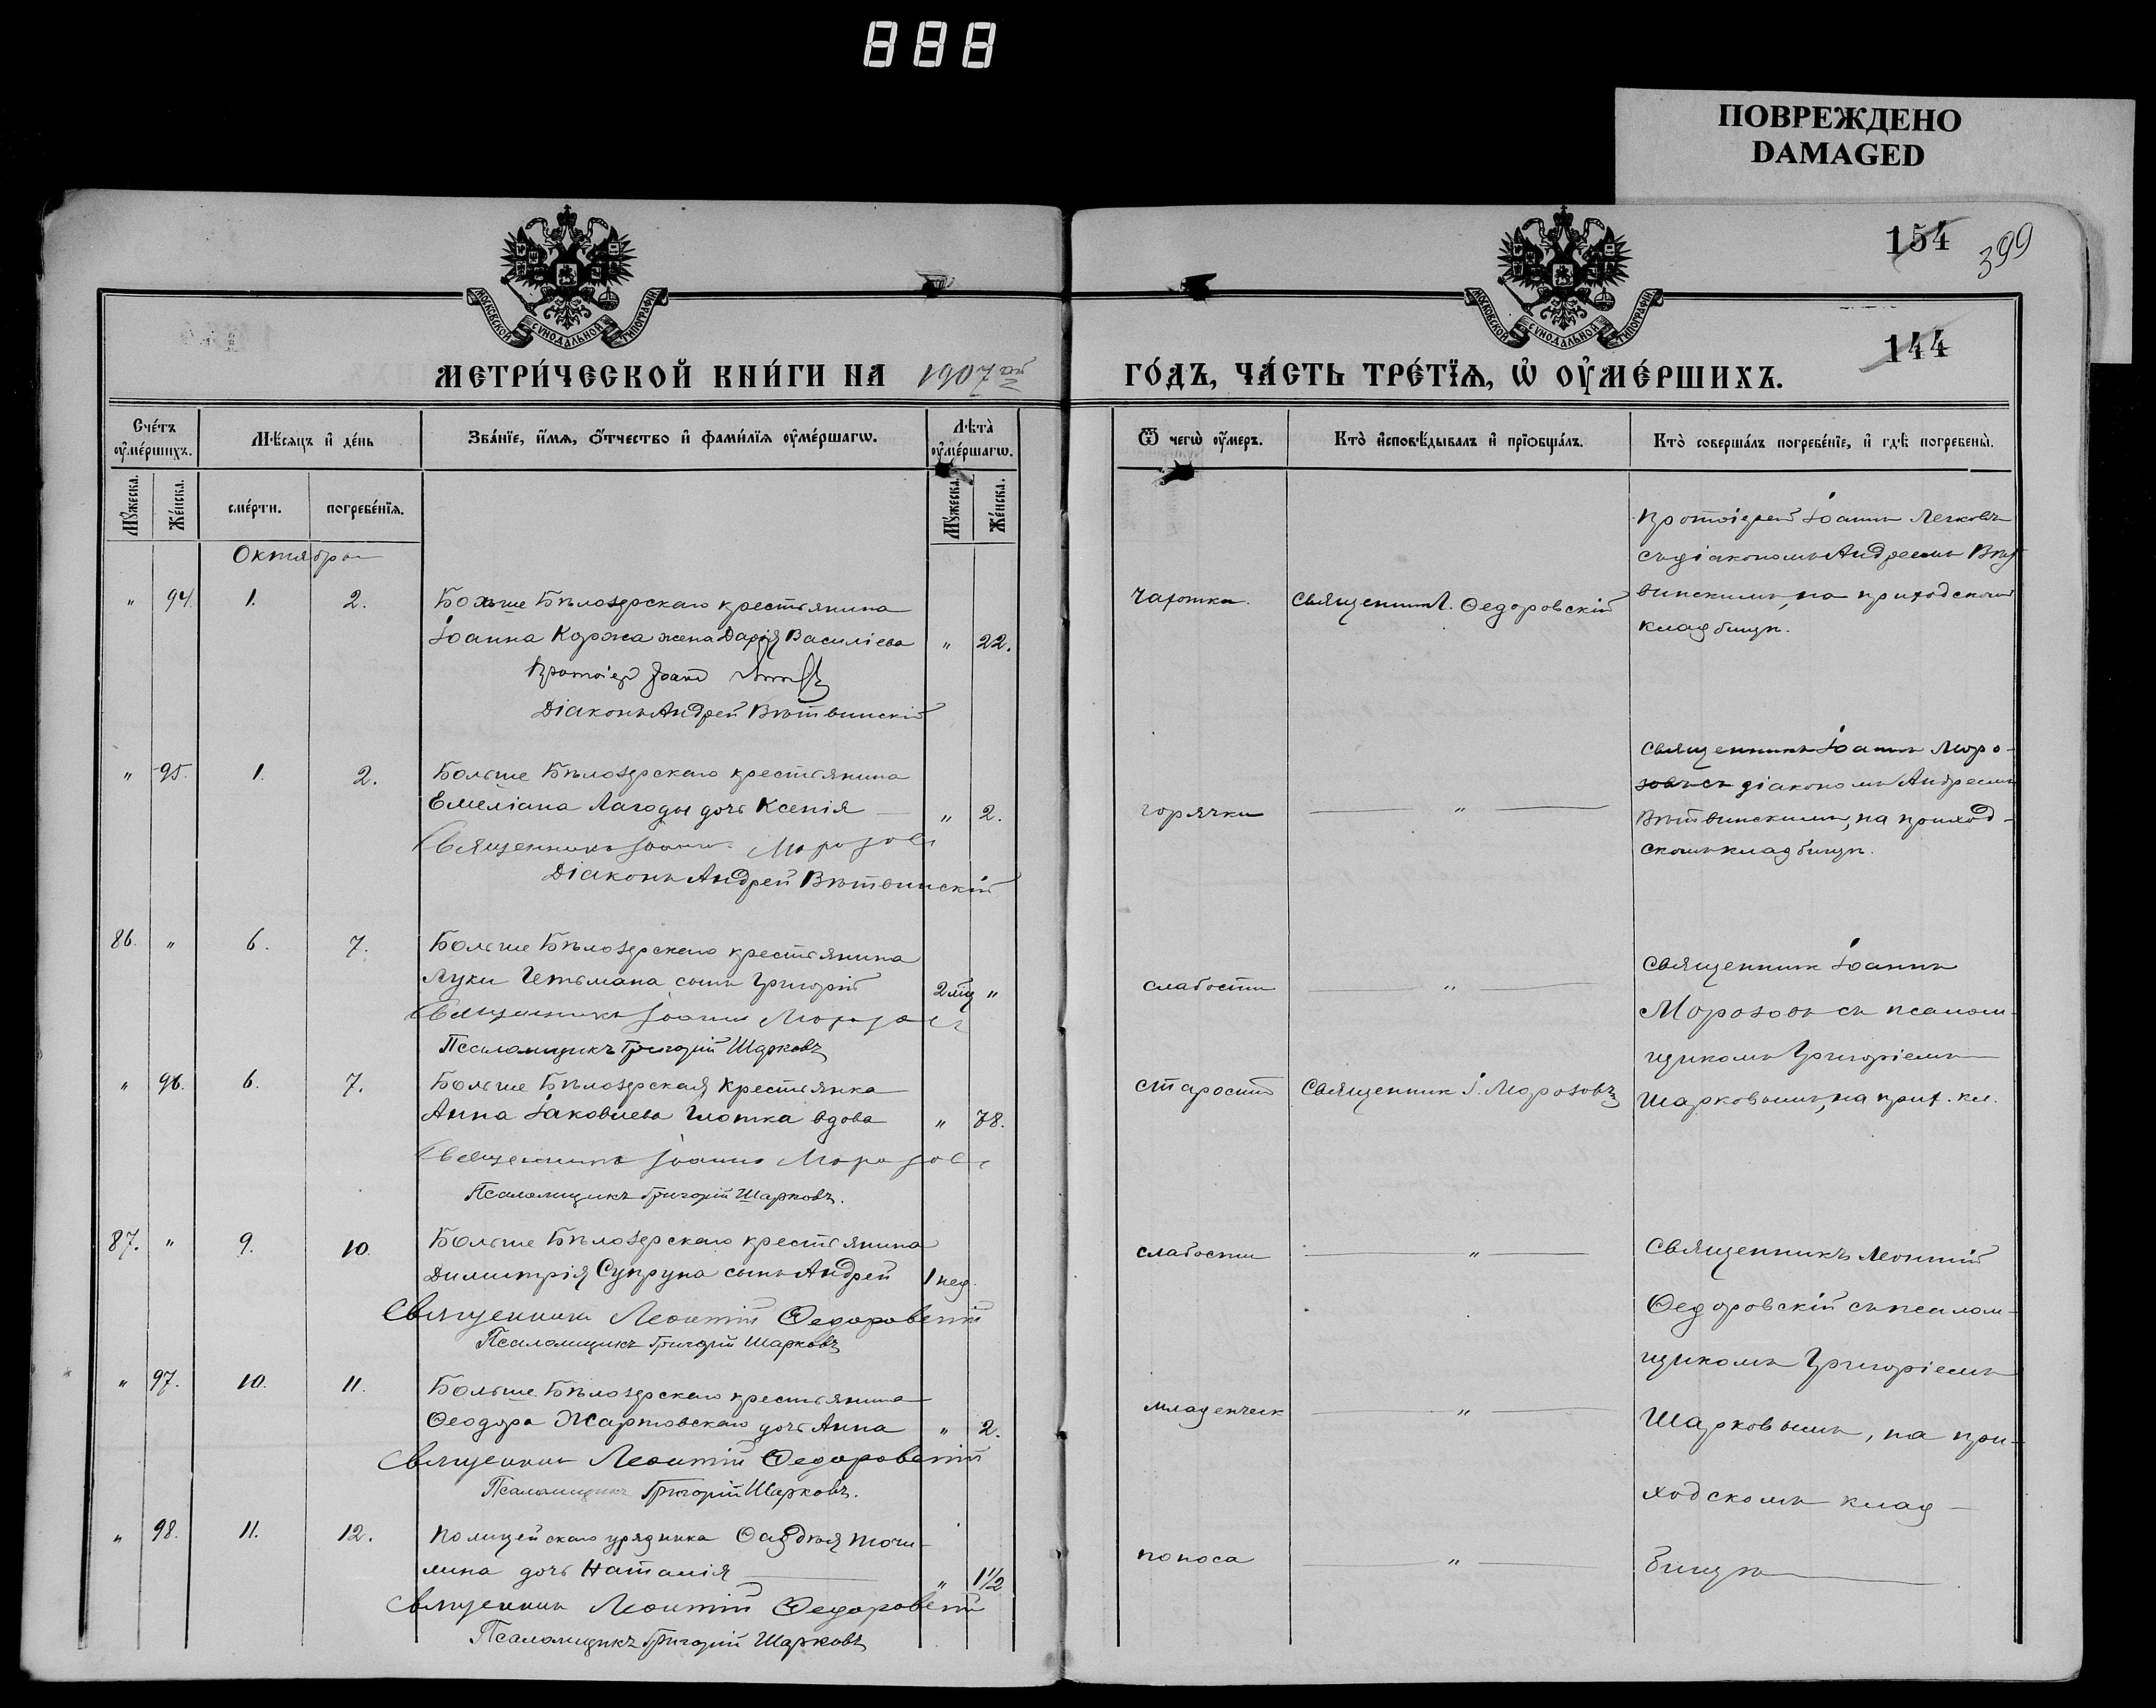 888
ПОВРЕЖДЕНО
DAMAGED
154 399
144
МОСКОВСКОЙ СѴНОДАЛЬНОЙ ТИПОГРАФІИ
МОСКОВСКОЙ СѴНОДАЛЬНОЙ ТИПОГРАФІИ
МЕТРИ́ЧЕСКОЙ КНИ́ГИ НА 1907ой
ГО́ДЪ, ЧА́СТЬ ТРЕ́ТЇѦ, Ѡ ОУ҆МЕ́РШИХЪ.
Сче́тъ оу҆ме́ршихъ.
Мѣ́сяцъ и҆ де́нь
Зва́нїе, и҆́мѧ, ѻ҆́тчество и҆ фами́лїѧ оу҆ме́ршагѡ.
Лѣ̀та̀ оу҆ме́ршагѡ.
Ѿ чегѡ̀ оу҆́меръ.
Кто̀ и҆сповѣ́дывалъ и҆ прїѡбща́лъ.
Кто̀ соверша́лъ погребе́нїе, и҆ гдѣ̀ погребены̀.
Мꙋ́жеска.
Же́нска.
сме́рти.
погребе́нїѧ.
Мꙋ́жеска.
Же́нска.
Октября
" 94. 1. 2. Больше Бѣлозерскаго крестьянина
Іоанна Коржа жена Дарія Василіева " 22.
Протоіер Іоанн
Діаконъ Андрей Вѣтвинскій
Чахотки. Священник Л. Ѳедоровскій
Протоіерей Іоаннъ Легковъ
съ діакономъ Андреемъ Вѣт
винскимъ, на приходском
кладбищѣ.
" 95. 1. 2. Больше Бѣлозерскаго крестьянина
Емеліана Лагоды дочь Ксенія " 2.
Священникъ Іоаннъ Морозовъ
Діаконъ Андрей Вѣтвинскій
горячки "
Священникъ Іоаннъ Моро-
зовъ съ діакономъ Андреемъ
Вѣтвинскимъ, на приход-
скомъ кладбищѣ.
86. " 6. 7. Больше Бѣлозерскаго крестьянина
Луки Гетьмана сынъ Григорій 2 мц "
Священникъ Іоаннъ Морозовъ
Псаломщикъ Григорій Шарковъ
слабости "
Священник Іоаннъ
Морозовъ съ псалом-
щикомъ Григоріемъ
Шарковымъ, на прих. кл.
" 96. 6. 7. Больше Бѣлозерская крестьянка
Анна Іаковлева Глотка вдова " 78.
Священникъ Іоаннъ Морозовъ
Псаломщикъ Григорій Шарковъ.
старости Священник І. Морозовъ
87. " 9. 10. Больше Бѣлозерскаго крестьянина
Димитрія Супруна сынъ Андрей 1 нед.
Священник Леонтій Ѳедоровскій
Псаломщикъ Григорій Шарковъ
слабости "
Священникъ Леонтій
Ѳедоровскій съ псалом-
щикомъ Григоріемъ
Шарковымъ, на при-
ходскомъ клад-
бищѣ
" 97. 10. 11. Больше Бѣлозерскаго крестьянина
Ѳеодора Жартовскаго дочь Анна " 2.
Священник Леонтій Ѳедоровскій
Псаломщикъ Григорій Шарковъ.
младенческ "
" 98. 11. 12. Полицейскаго урядника Ѳаддѣя Точи-
лина дочь Наталія " 1 1/2
Священник Леонтій Ѳедоровскій
Псаломщикъ Григорій Шарковъ
поноса "